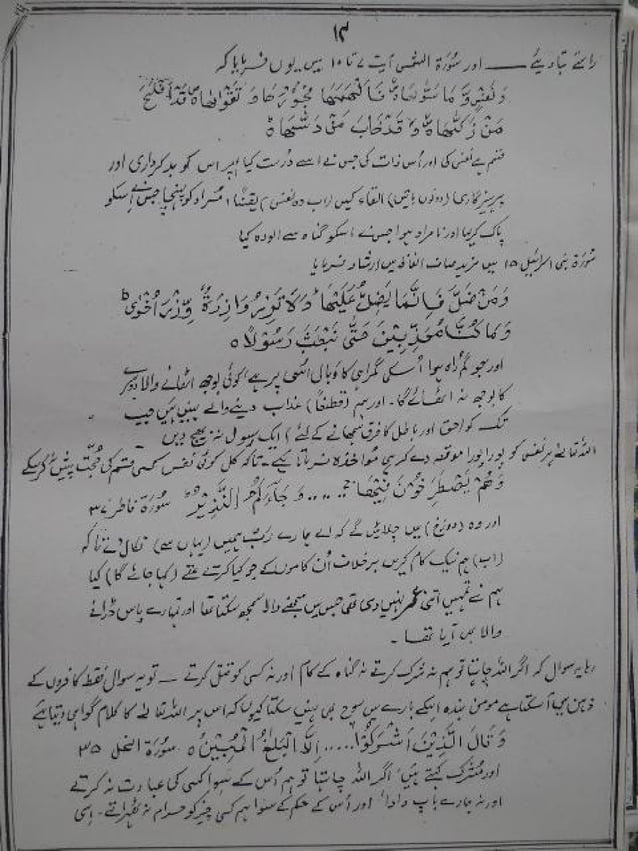 ۱۴
راستے بتا دیئے ـــــ اور سُورَۃ الشمس آیت ۷ تا ۱۰ میں یوں فرمایا کہ
وَنَفْسٍ وَّمَا سَوّٰىهَا فَاَلْهَمَهَا فُجُوْرَهَا وَتَقْوٰىهَا قَدْ اَفْلَحَ
مَنْ زَكّٰىهَا وَقَدْ خَابَ مَنْ دَسّٰىهَا
قسم ہے نفس کی اور اُس ذات کی جس نے اسے دُرست کیا پھر اس کو بدکرداری اور
پرہیزگاری (دونوں باتیں) القاء کیں (اب وہ نفس) یقیناً مُراد کو پہنچا جس نے اسکو
پاک کرلیا اور نامراد ہوا جس نے اسکو گناہ سے آلودہ کیا
سُورَۃ بنی اسرائیل ۱۵ میں مزید صاف الفاظ میں ارشاد فرمایا
وَمَنْ ضَلَّ فَاِنَّمَا يَضِلُّ عَلَيْهَا وَلَا تَزِرُ وَازِرَةٌ وِّزْرَ اُخْرٰى
وَمَا كُنَّا مُعَذِّبِيْنَ حَتّٰى نَبْعَثَ رَسُوْلًا
اور جو گمراہ ہوا اُسکی گمراہی کا وَبال اُسی پر ہے، کوئی بوجھ اٹھانے والا دوسرے
کا بوجھ نہ اٹھائے گا۔ اور ہم (قطعاً) عذاب دینے والے نہیں ہیں جب
تک کہ (حق اور باطل کا فرق سمجھانے کے لئے) ایک رسول نہ بھیج دیں
اللہ تعالیٰ ہر نفس کو پورا پورا موقعہ دے کر ہی مُواخذہ فرماتا ہے۔ تاکہ کل کوئی نفس کسی قسم کی حُجّت پیش نہ کر سکے
وَهُمْ يَصْطَرِخُوْنَ فِيْهَا ..... وَجَآءَكُمُ النَّذِيْرُ سورۃ فاطر ۳۷
اور وہ (دوزخ) میں چلائیں گے کہ اے ہمارے رَبّ ہمیں (یہاں سے) نکال دے تاکہ
(اب) ہم نیک کام کریں برخلاف اُن کاموں کے جو کیا کرتے تھے (کہا جائے گا) کیا
ہم نے تمہیں اتنی عُمر نہیں دی تھی جس میں سمجھنے والا سمجھ سکتا تھا اور تمہارے پاس ڈرانے
والا بھی آیا تھا ۔
رہا یہ سوال کہ اگر اللہ چاہتا تو ہم نہ شرک کرتے نہ گناہ کے کام اور نہ کسی کو قتل کرتے ـ تو یہ سوال فقط کافروں کے
ذہن میں آ سکتا ہے مومن بندہ اسکے بارے میں سوچ بھی نہیں سکتا کیونکہ اس پر اللہ تعالیٰ کا کلام گواہی دیتا ہے
وَقَالَ الَّذِيْنَ اَشْرَكُوْا ..... اِلَّا الْبَلٰغُ الْمُبِيْنُ سورۃ النحل ۳۵
اور مشرک کہتے ہیں اگر اللہ چاہتا تو ہم اُس کے سوا کسی کی عبادت نہ کرتے
اور نہ ہمارے باپ دادا، اور اُس کے حکم کے سوا ہم کسی چیز کو حرام نہ ٹھہراتے۔ اِسی